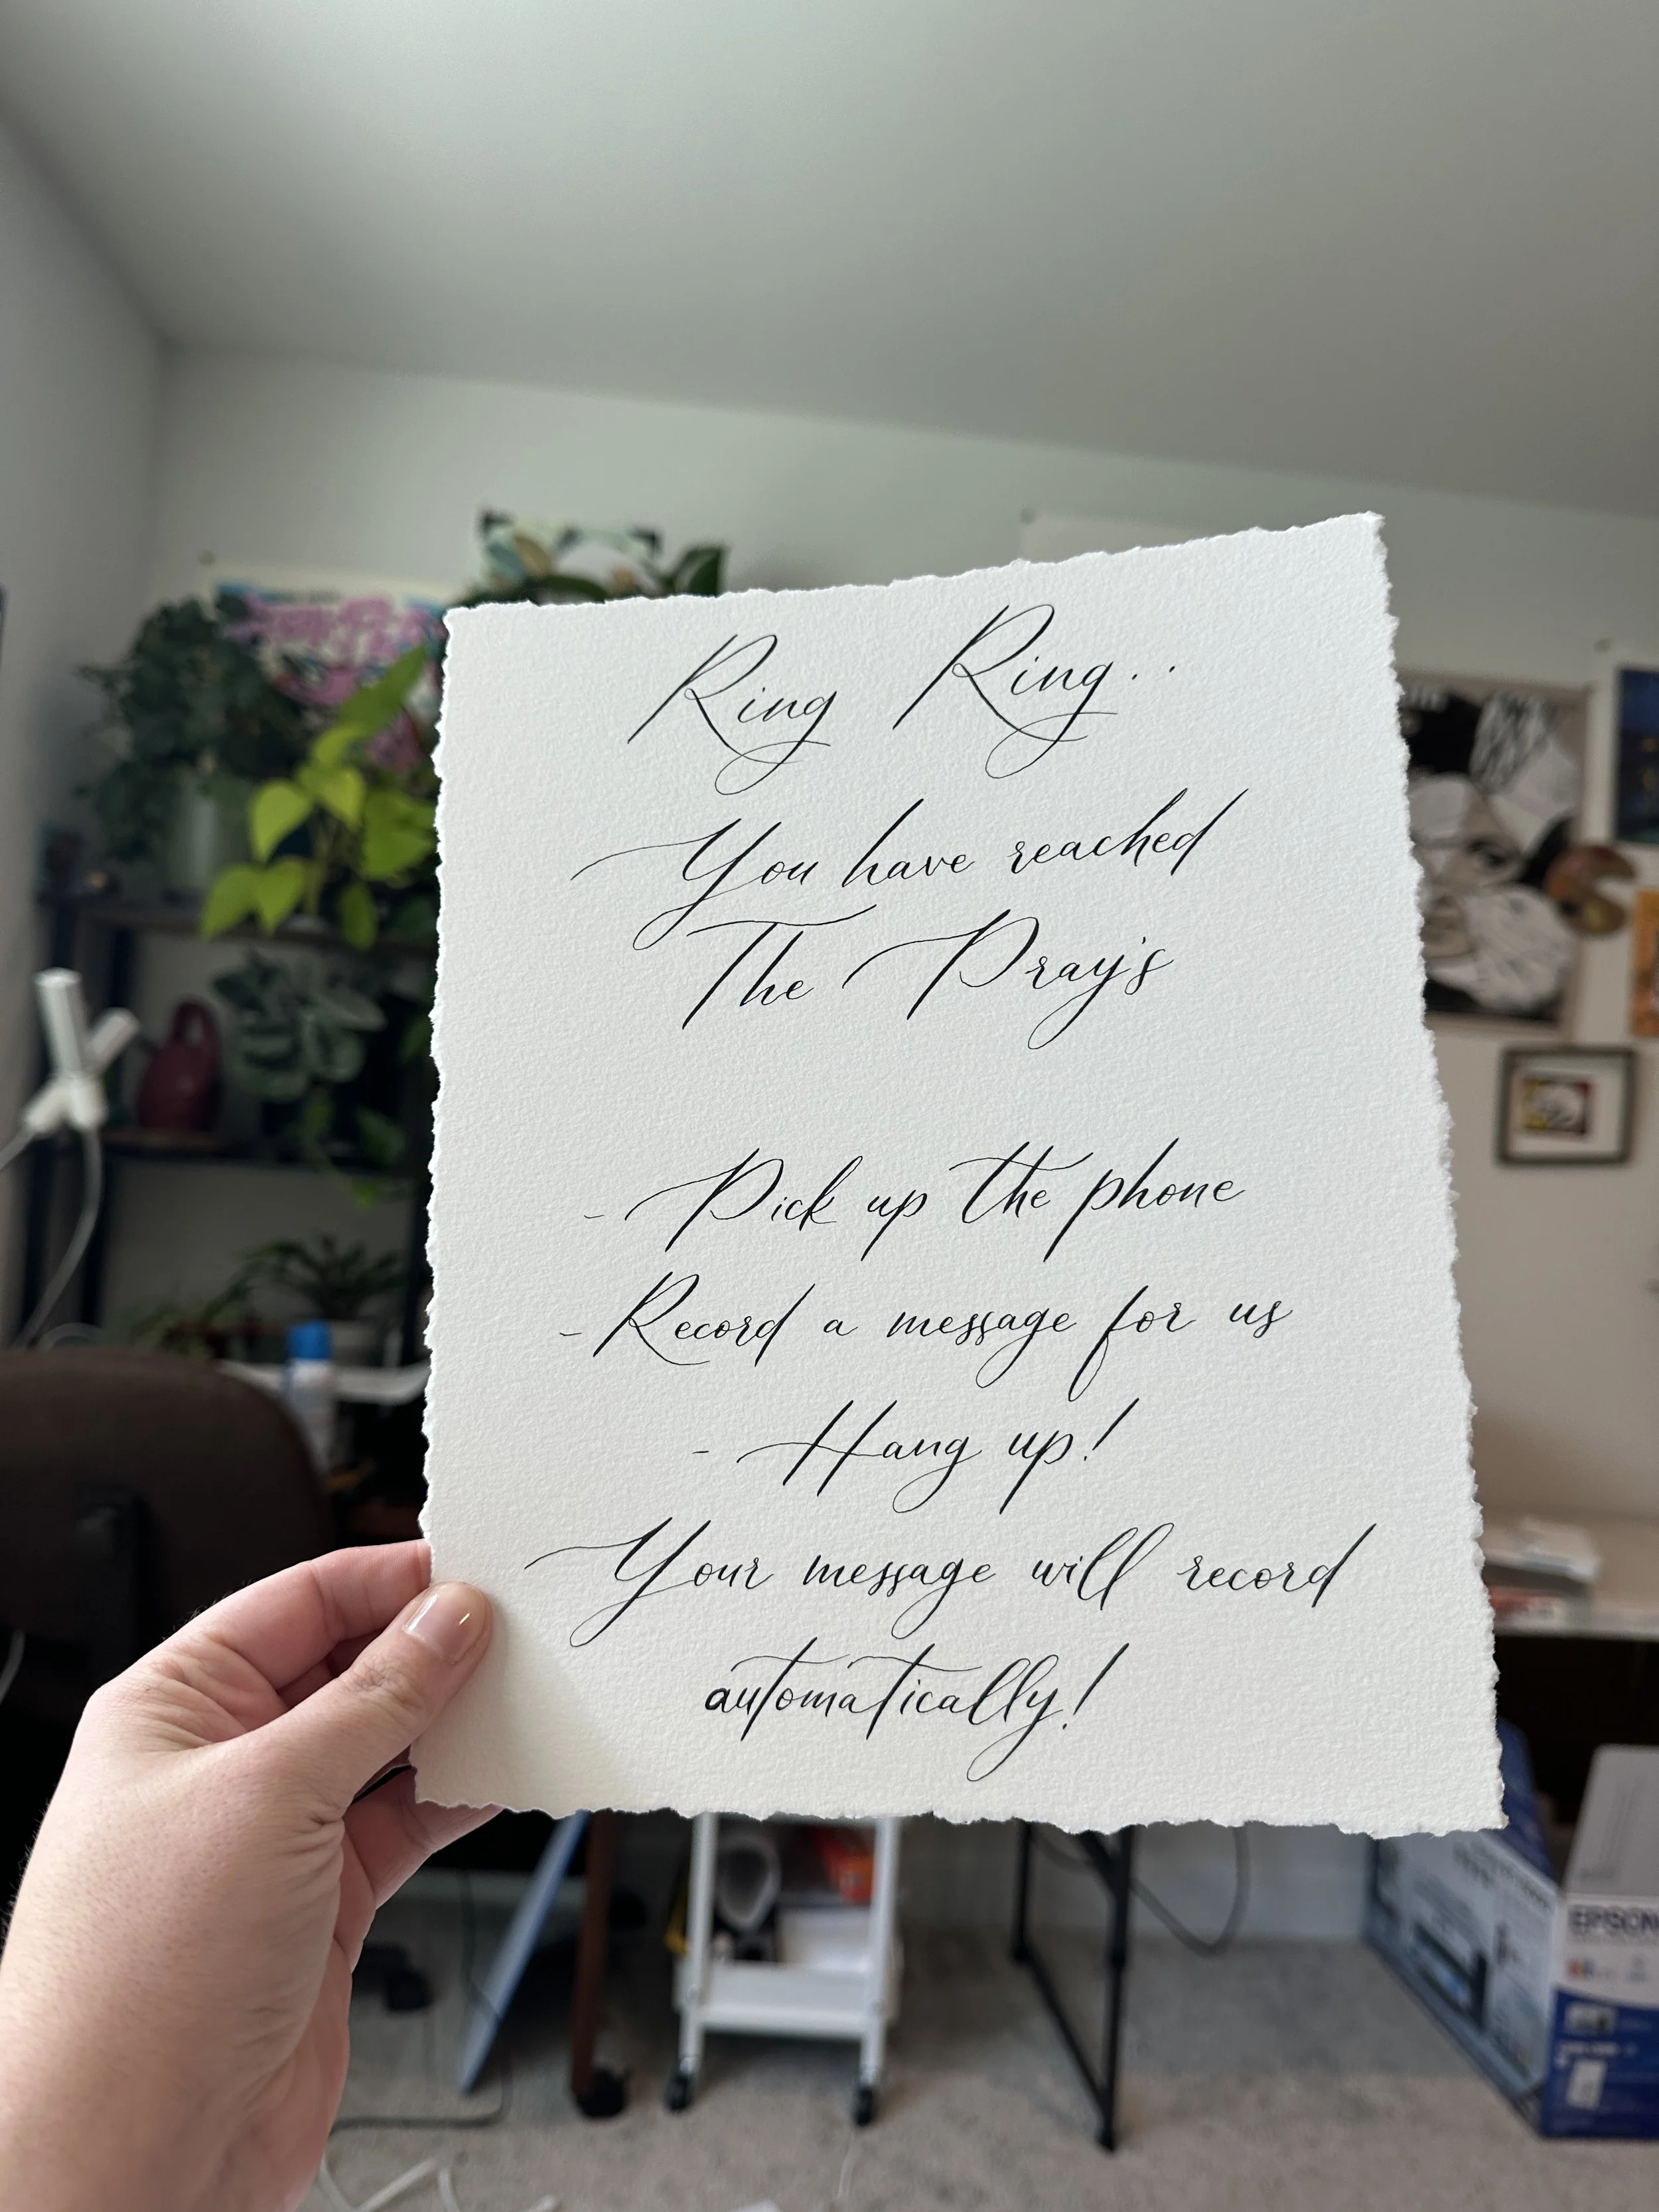 Ring Ring..
You have reached
The Pray's
- Pick up the phone
- Record a message for us
- Hang up!
Your message will record
automatically!
EPSON